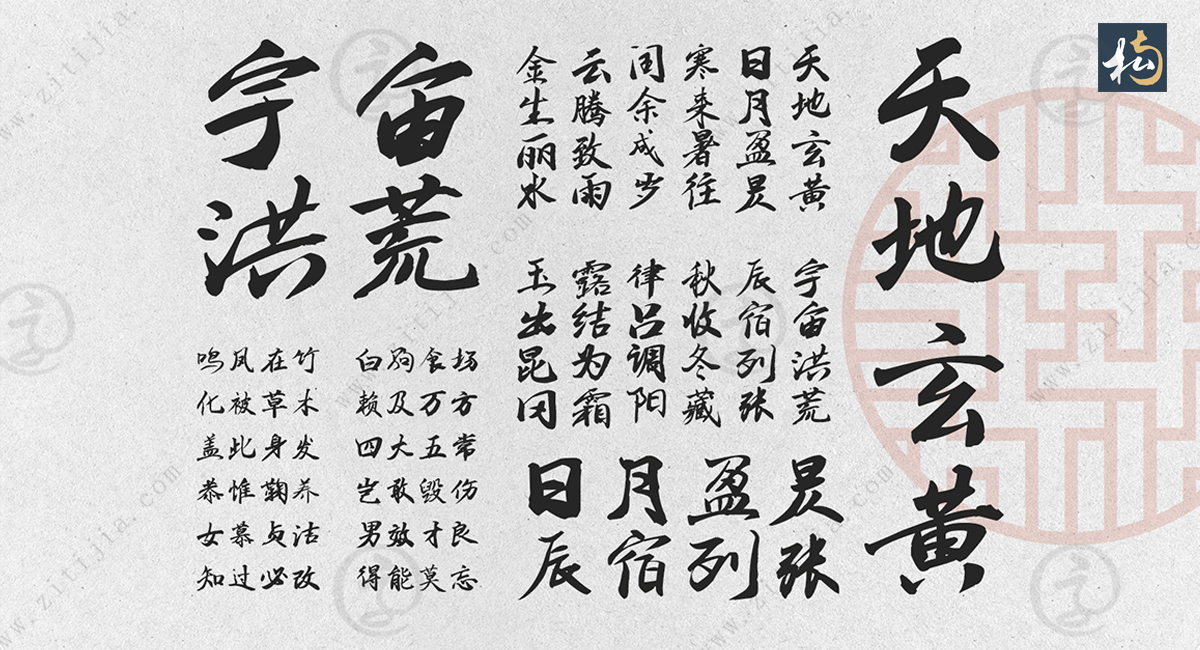 天地玄黄
天地玄黄
日月盈昃
寒来暑往
闰余成岁
云腾致雨
金生丽水
宇宙洪荒
辰宿列张
秋收冬藏
律吕调阳
露结为霜
玉出昆冈
日月盈昃
辰宿列张
宇宙
洪荒
鸣凤在竹 白驹食场
化被草木 赖及万方
盖此身发 四大五常
恭惟鞠养 岂敢毁伤
女慕贞洁 男效才良
知过必改 得能莫忘
www.zitijia.com